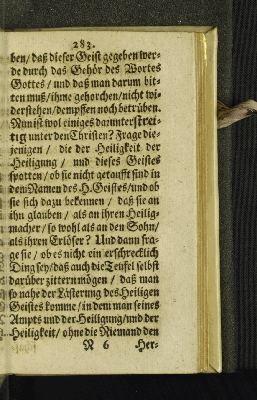 283.
ben/ daß dieser Geist gegeben wer-
de durch das Gehör des Wortes
Gottes / und daß man darum bit-
ten muß/ ihme gehorchen/ nicht wi-
derstehen/ dempffen noch betrüben.
Nun ist wol einiges darunter strei-
tig unter den Christen? Frage die-
jenigen / die der Heiligkeit der
Heiligung / und dieses Geistes
spotten / ob sie nicht getaufft sind in
dem Namen des H. Geistes/ und ob
sie sich dazu bekennen / daß sie an
ihn glauben / als an ihren Heilig-
macher / so wohl als an den Sohn/
als ihren Erlöser? Und dann fra-
ge sie / ob es nicht ein erschrecklich
Ding sey/ daß auch die Teufel selbst
darüber zittern mögen / daß man
so nahe der Lästerung des Heiligen
Geistes komme / in dem man seines
Ampts und der Heiligung/ und der
Heiligkeit / ohne die Niemand den
N 6 Her-